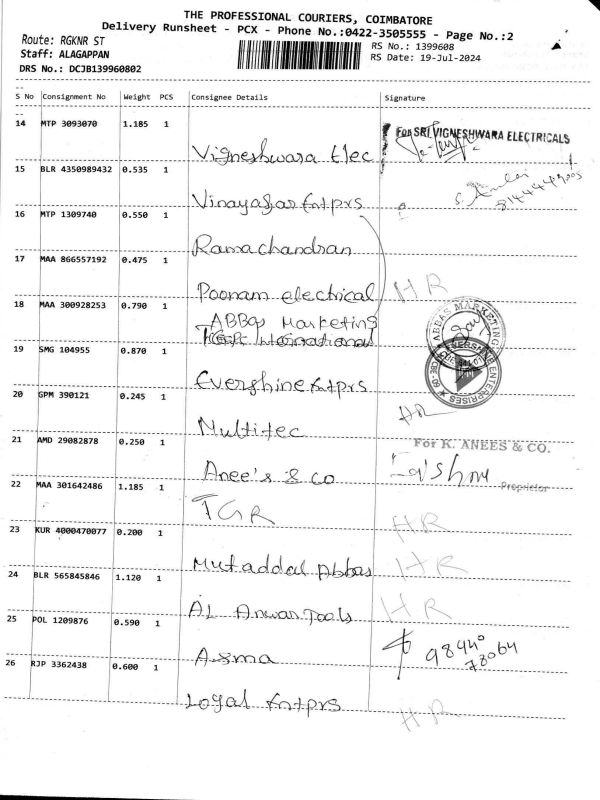 THE PROFESSIONAL COURIERS, COIMBATORE
Delivery Runsheet - PCX - Phone No.:0422-3505555 - Page No.:2
Route: RGKNR ST
RS No.: 1399608
Staff: ALAGAPPAN
RS Date: 19-Jul-2024
DRS No.: DCJB139960802
S No Consignment No Weight PCS Consignee Details Signature
14 MTP 3093070 1.185 1 Vigneshwara Elec For SRI VIGNESHWARA ELECTRICALS
15 BLR 4350989432 0.535 1 Vinayagar Entprs
16 MTP 1309740 0.550 1 Ramachandran
17 MAA 866557192 0.475 1 Poonam electrical HR
18 MAA 300928253 0.790 1 ABBas Marketing ABBAS MARKETING
International
19 SMG 104955 0.870 1 Evershine Entprs EVERSHINE ENTERPRISES
20 GPM 390121 0.245 1 Multitec HR
21 AMD 29082878 0.250 1 Anee's & Co For K. ANEES & CO.
Proprietor
22 MAA 301642486 1.185 1 TGR HR
23 KUR 4000470077 0.200 1 Mufaddal Abbas HR
24 BLR 565845846 1.120 1 AL Anwar Tools HR
25 POL 1209876 0.590 1 Asma 98440
78064
26 RJP 3362438 0.600 1 Loyal Entprs HR